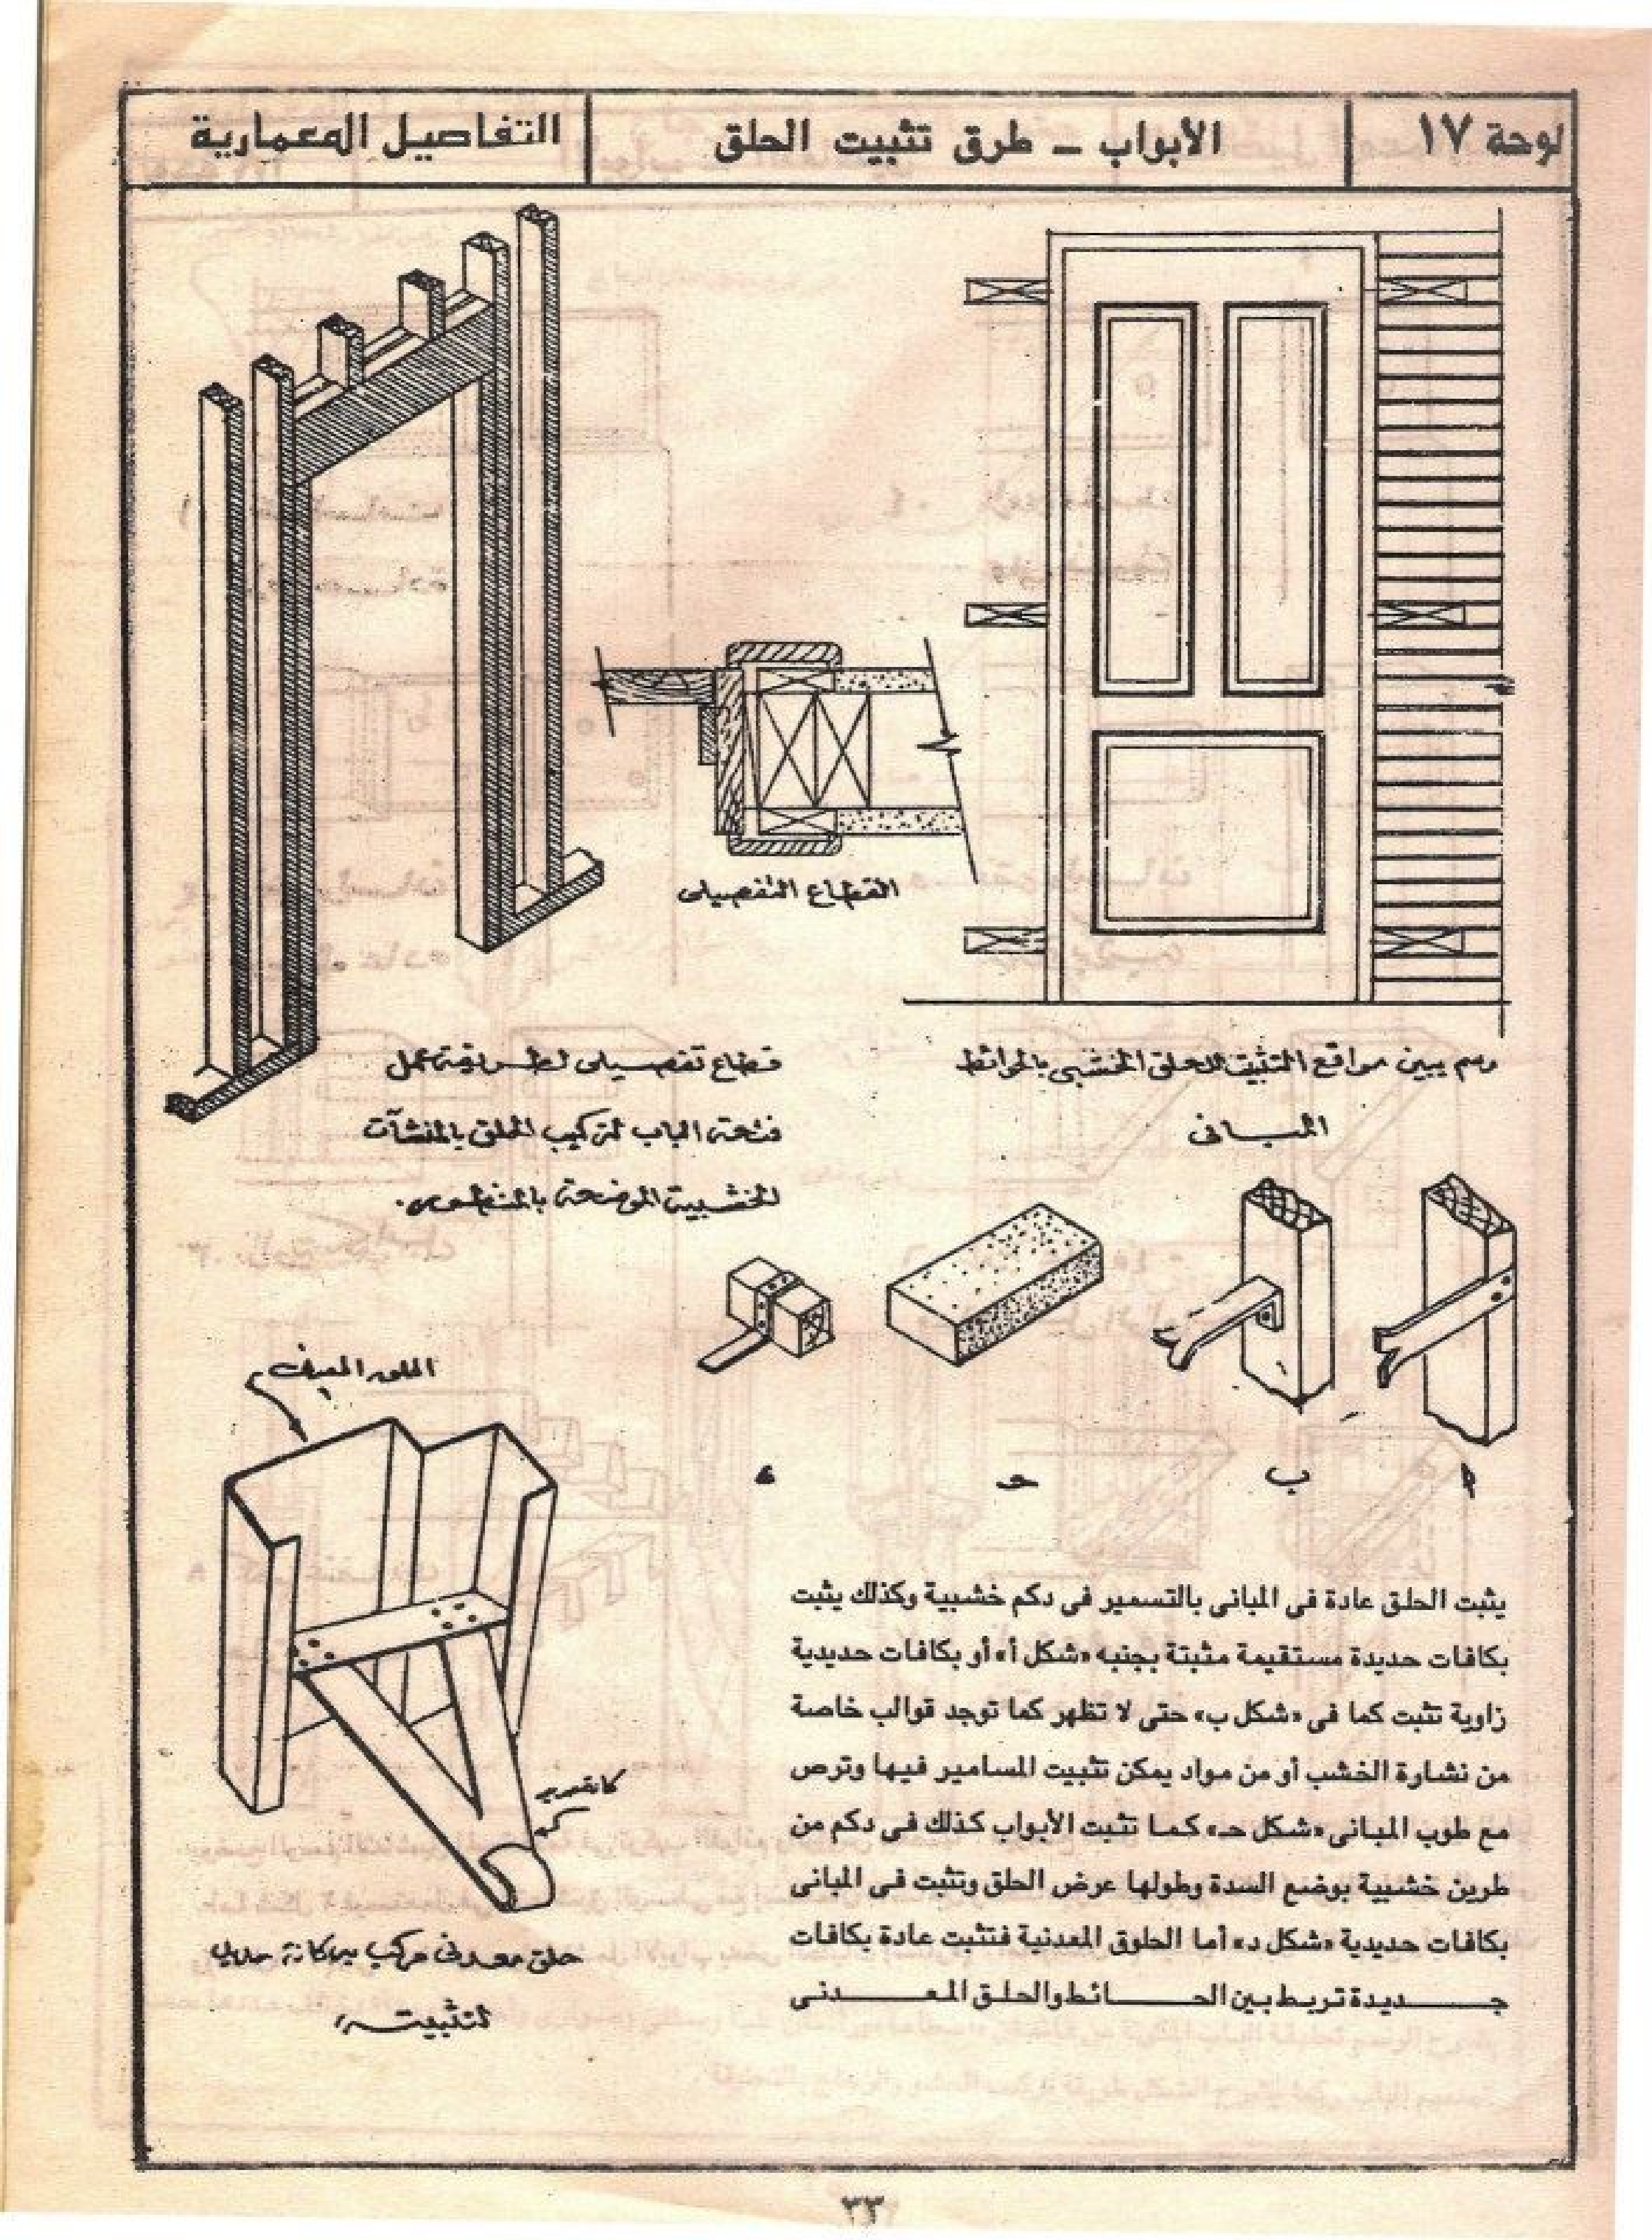 لوحة ١٧
الأبواب - طرق تثبيت الحلق
التفاصيل المعمارية
القطاع التفصيلى
رسم يبين مواقع التثبيت للحلق الخشبى بالحوائط
المبانى
قطاع تفصيلى لطريقة عمل
فتحة الباب لتركيب الحلق بالمنشآت
الخشبية الموضحة بالمنظور.
أ
ب
حـ
د
الحلق المعدنى
كانة حديد
حلق معدنى مركب به كانة حديد
لتثبيته
يثبت الحلق عادة فى المبانى بالتسمير فى دكم خشبية وكذلك يثبت
بكافات حديدة مستقيمة مثبتة بجنبه «شكل أ» أو بكافات حديدية
زاوية تثبت كما فى «شكل ب» حتى لا تظهر كما توجد قوالب خاصة
من نشارة الخشب أو من مواد يمكن تثبيت المسامير فيها وترص
مع طوب المبانى «شكل حـ» كما تثبت الأبواب كذلك فى دكم من
طرين خشبية بوضع السدة وطولها عرض الحلق وتثبت فى المبانى
بكافات حديدية «شكل د» أما الحلوق المعدنية فتثبت عادة بكافات
جديدة تربط بين الحائط والحلق المعدنى
٣٣